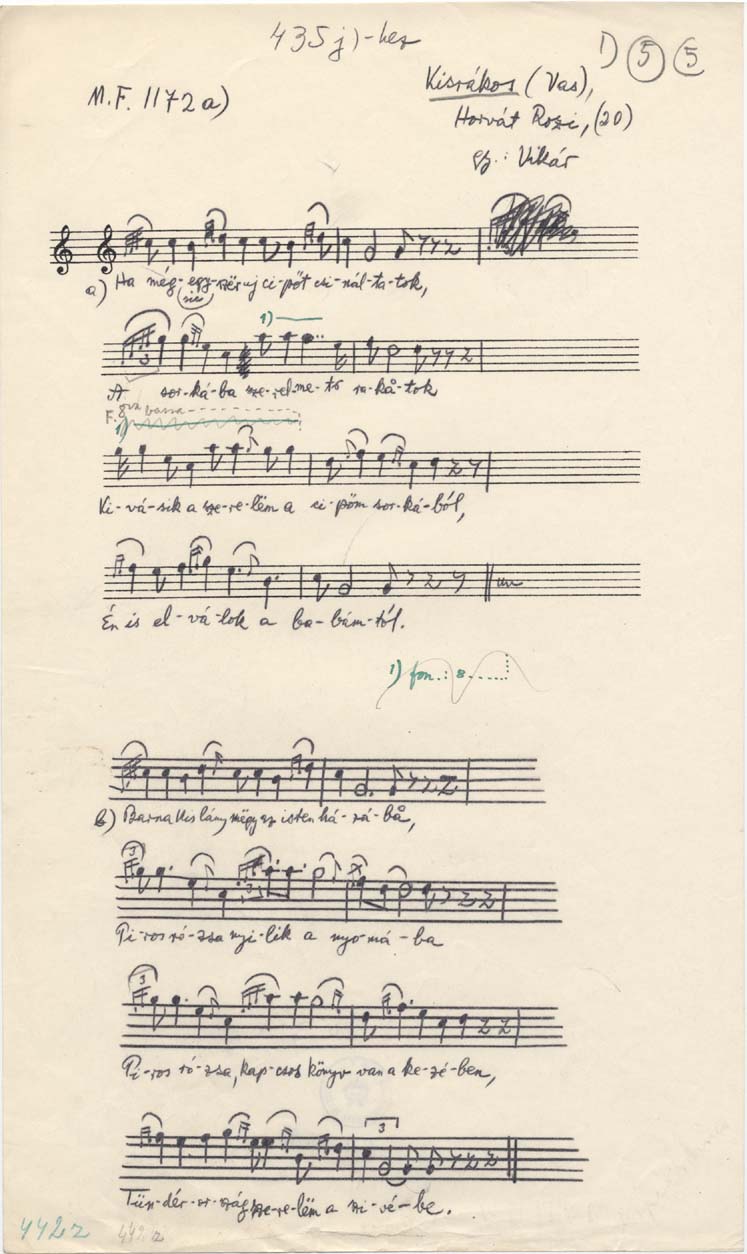 435 j)-hez
1) 5 5
M.F. 1172 a)
Kisrákos (Vas),
Horvát Rozi, (20)
gy.: Vikár
a) Ha még-egy-szër uj ci-pőt csi-nál-ta-tok,
(sic)
1)
3
A sor-ká-ba sze-rel-me-t rakå-tok
F. 8va bassa
1)
Ki-vá-sik a sze-re-lëm a ci-pőm sor-ká-ból,
Én is el-vá-lok a ba-bám-tól.
1) fon.: 8
b) Barna kis lány mëgy az isten há-zá-bå,
3
3
Pi-ros ró-zsa nyi-lik a nyo-má-ba
3
Pi-ros ró-zsa, kap-csos könyv van a ke-zé-ben,
3
Tün-dér-or-szág sze-re-lëm a szi-vé-be.
442z 442z